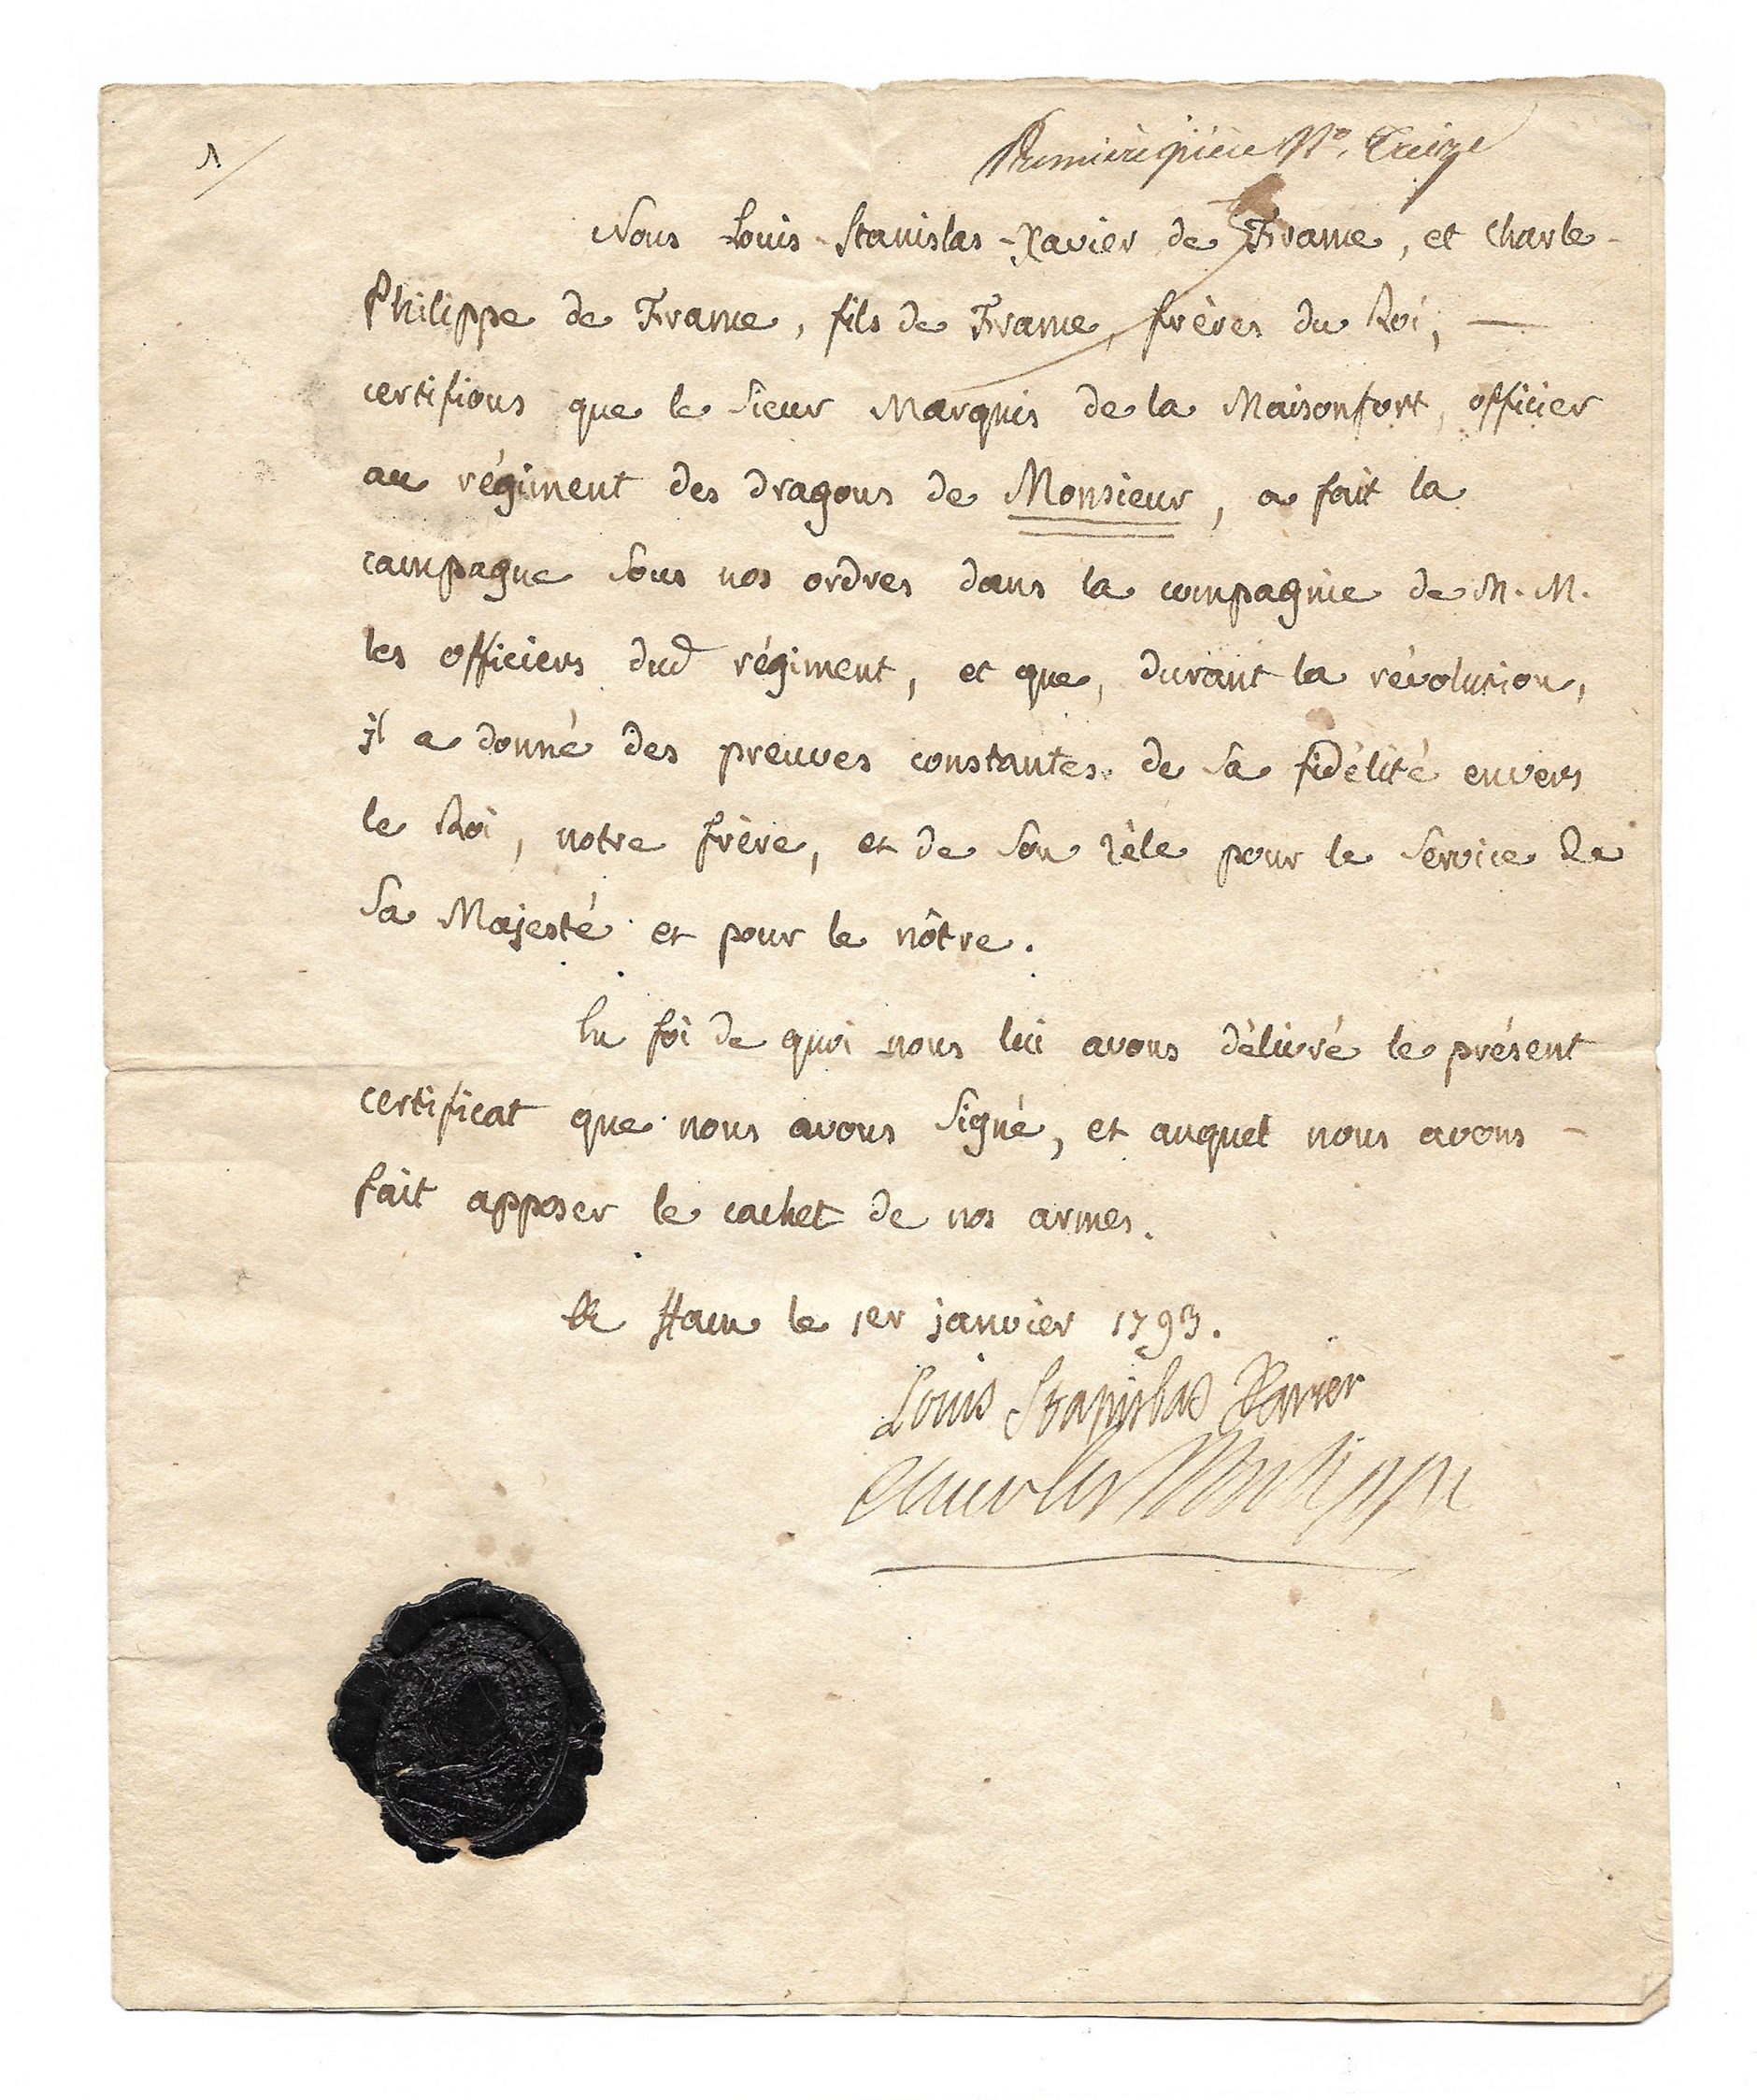 1/
Première pièce N°. Treize
Nous Louis-Stanislas-Xavier de France, et Charle-
Philippe de France, fils de France, frères du Roi, —
certifions que le Sieur Marquis de la Maisonfort, officier
au régiment des dragons de Monsieur, a fait la
campagne sous nos ordres dans la compagnie de M. M.
les officiers dud régiment, et que, durant la révolution,
il a donné des preuves constantes de sa fidélité envers
le Roi, notre frère, et de son zèle pour le service de
Sa Majesté et pour le nôtre.
En foi de quoi nous lui avons délivré le présent
certificat que nous avons signé, et auquel nous avons -
fait apposer le cachet de nos armes.
à Ham le 1er janvier 1793.
Louis Stanislas Xavier
Charles Philippe